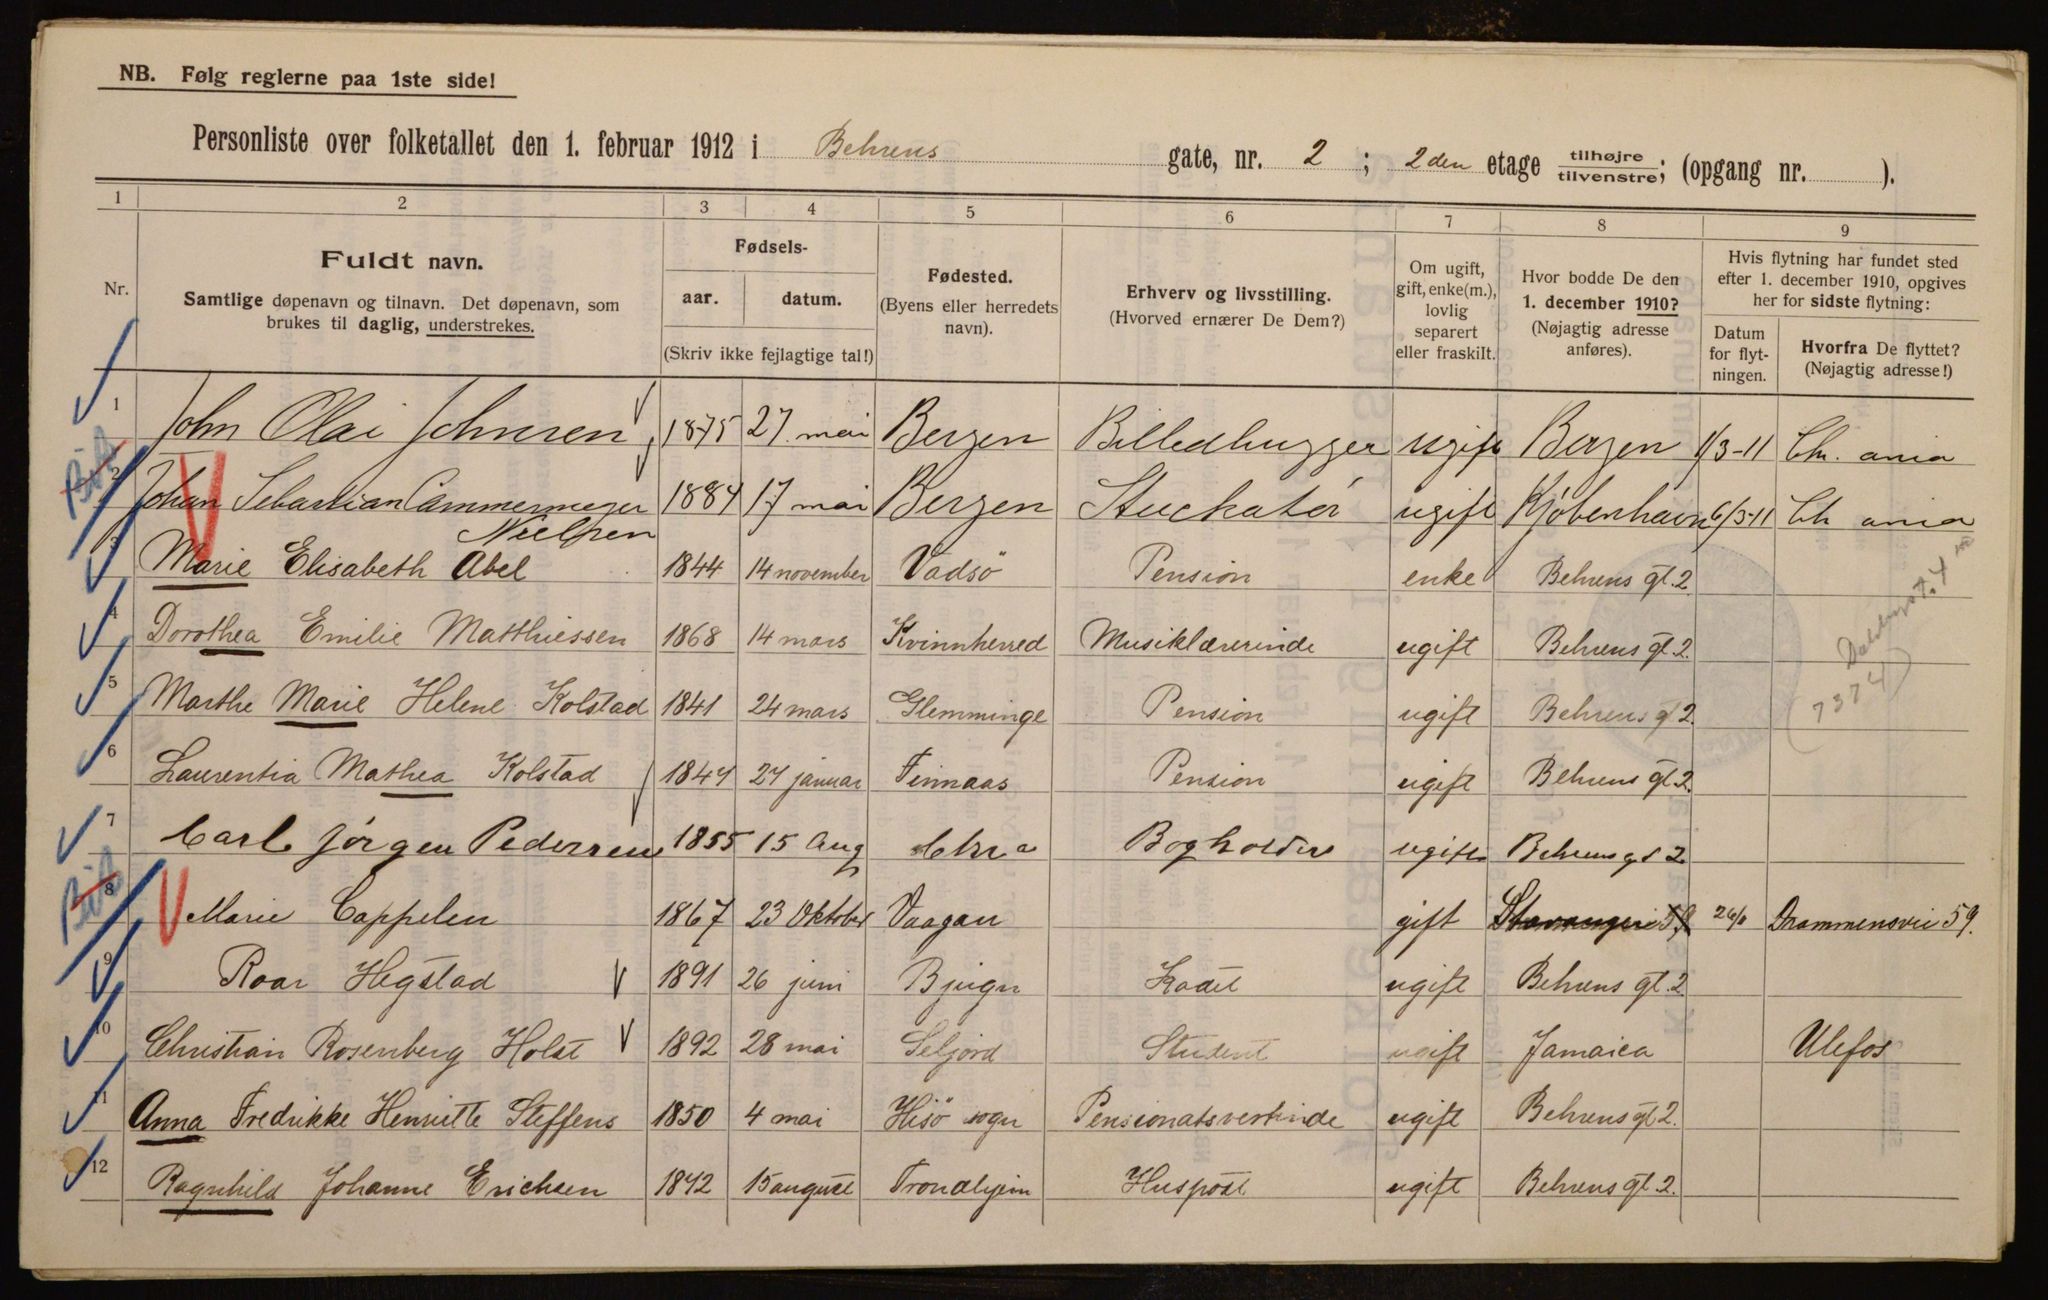 NB. Følg reglerne paa 1ste side!
Personliste over folketallet den 1. februar 1912 i Behrens gate, nr. 2 ; 2den etage tilhøjre tilvenstre; (opgang nr. ).
1 2 3 4 5 6 7 8 9
Nr.
Fuldt navn.
Samtlige døpenavn og tilnavn. Det døpenavn, som
brukes til daglig, understrekes.
Fødsels-
aar. datum.
(Skriv ikke fejlagtige tal!)
Fødested.
(Byens eller herredets
navn).
Erhverv og livsstilling.
(Hvorved ernærer De Dem?)
Om ugift,
gift, enke(m.),
lovlig
separert
eller fraskilt.
Hvor bodde De den
1. december 1910?
(Nøjagtig adresse
anføres).
Hvis flytning har fundet sted
efter 1. december 1910, opgives
her for sidste flytning:
Datum
for flyt-
ningen.
Hvorfra De flyttet?
(Nøjagtig adresse!)
1 John Olai Johnsen 1875 27. mai Bergen Billedhugger ugift Bergen 1/3-11 Chr. ania
2 Johan Sebastian Cammermeyer 1884 17 mai Bergen Stuckatør ugift Kjøbenhavn 6/3-11 Ch ania
Nielsen
3 Marie Elisabeth Abel 1844 14 november Vadsö Pension enke Behrens gt. 2
4 Dorothea Emilie Matthiessen 1868 14 mars Kvinnherred Musiklærerinde ugift Behrens gt. 2.
5 Marthe Marie Helene Kolstad 1841 24 mars Glemminge Pension ugift Behrens gt 2.
(7374)
6 Laurentia Mathea Kolstad 1847 27 januar Finnaas Pension ugift Behrens gt. 2.
7 Carl Jörgen Pedersen 1855 15 Aug Chra Bogholder ugift Behrens gt 2
8 Marie Cappelen 1867 23 Oktober Vaagan gift 26/1 Drammensvei 59.
9 Roar Hegstad 1891 26 juni Bjugn Kadet ugift Behrens gt. 2
10 Christian Rosenberg Holst 1892 28 mai Seljord Student ugift Jamaica Ulefos
11 Anna Fredrikke Henriette Steffens 1850 4 mai Hisö sogn Pensionatsvertinde ugift Behrens gt 2.
12 Ragnhild Johanne Erichsen 1842 15 august Trondhjem Huspost ugift Behrens gt. 2.